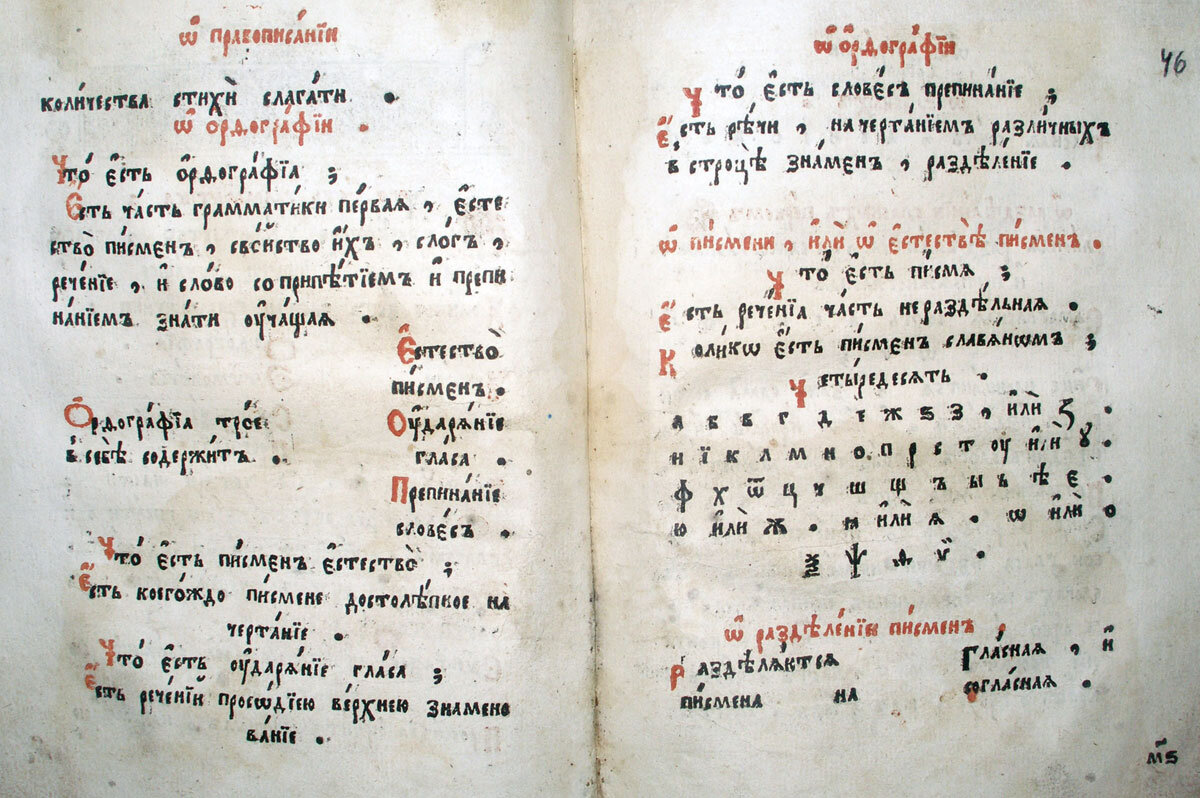 Ѿ правописа́нїи
коли́чества стихѝ слага́ти .
Ѿ орѳогра́фїи .
Что́ є҆́сть ѻ҆рѳогра́фїа ;
Є҆́сть ча́сть грамма́тїки пе́рвая , є҆сте
ство̀ пи́смен , сво́йство и҆́хъ , сло́гъ ,
рече́нїе , и҆ сло́во со припѣ́тїемъ и҆ препи
на́нїемъ зна́ти оу҆ча́щая .
Є҆стество̀
пи́смєнъ .
Ѻ҆рѳогра́фїа трое́
в̾ себѣ̀ содержи́тъ .
Оу҆дарѧ́нїе
гла́са .
Препина́нїе
слове́съ .
Что́ є҆́сть пи́сменъ є҆стество̀ ;
Є҆́сть коего́ждо пи́смене достолѣ́пное на
черта́нїе .
Что́ є҆́сть оу҆дарѧ́нїе гла́са ;
Є҆́сть рече́нїй просѡді́ею ве́рхнею знамено
ва́нїе .
Ѿ ѻ҆рѳогра́фїи
46
Что́ є҆́сть слове́съ препина́нїе ;
Є҆́сть рѣ́чи , начерта́нїемъ разли́чныхъ
в̾ строцѣ̀ зна́менъ , раздѣле́нїе .
Ѿ пи́смени , и҆лѝ ѿ є҆стествѣ̀ пи́сменъ .
Что́ є҆́сть пи́смѧ ;
Є҆́сть рече́нїа ча́сть нераздѣ́льная .
Коли́кѡ є҆́сть пи́сменъ славѧ́нѡмъ ;
Четы́редесѧть .
а б в г д е ж ѕ з , и҆лѝ ꙁ .
и ї к л м н о п р с т оу и҆лѝ ꙋ .
ф х ѿ ц ч ш щ ъ ы ь ѣ є
ю и҆лѝ ѫ . ꙗ и҆лѝ ѧ . ѡ и҆лѝ о
ѯ ѱ ѳ ѵ .
Ѿ раздѣле́нїи пи́сменъ .
Раздѣлѧ́ются
пи́смена на
гла́сная , и҆
согла́сная .
м҃ѕ